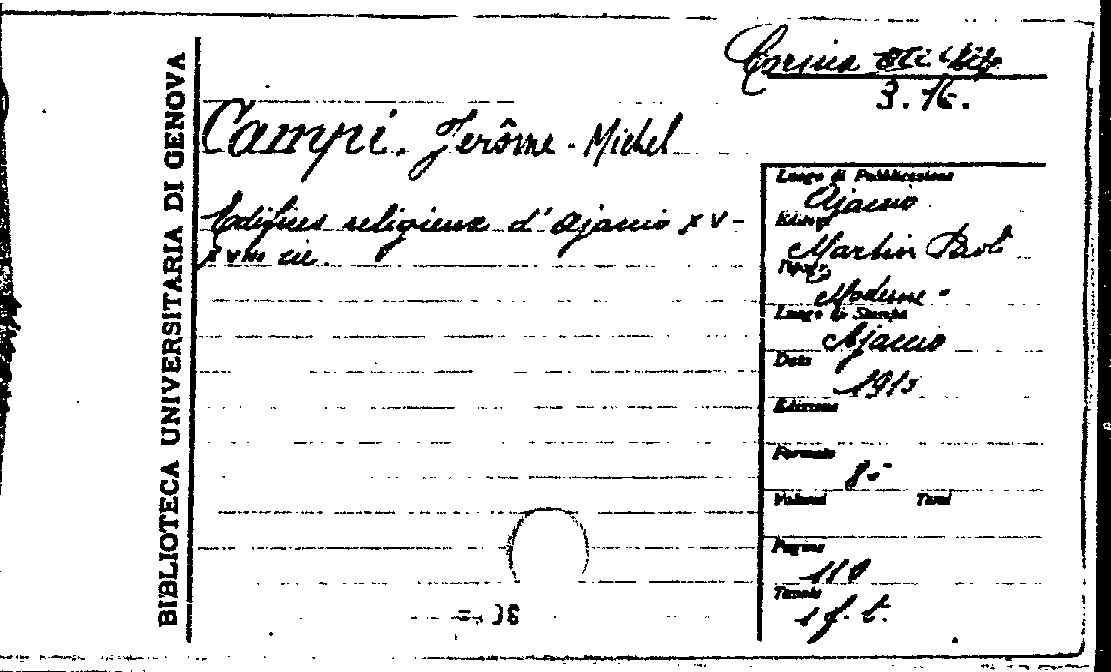 BIBLIOTECA UNIVERSITARIA DI GENOVA
Corsica
3. 16.
Campi. Jerôme - Michel
Edifices religieux d'Ajaccio XV-
XVIII siè.
Luogo di Pubblicazione
Ajaccio
Editore
Martin Paoli
Tipogr.
Moderne -
Luogo di Stampa
Ajaccio
Data
1913
Edizione
Formato
8°
Volumi Tomi
Pagine
110
Tavole
1 f. t.